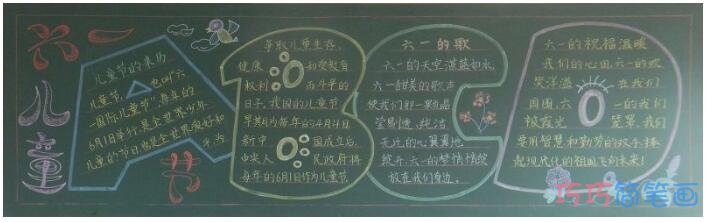 六一
儿童
节
儿童节的来历
儿童节,也叫六
一国际儿童节",每年的
6月1日举行,是全世界少年
儿童的节日
争取儿童生存、
健康 和受教育
权利 而斗争的
日子,我国的儿童节
早期为每年的4月4日
新中 国成立后,
中央人 民政府将
每年的6月1日作为儿童节
六一的歌
六一的天空湛蓝如水,
六一甜美的歌声
使我们那一颗颗晶
莹剔透、纯洁
无比的心翼翼地
绽开,六一的梦情情绽
放在我们身边。
六一的祝福温暖
我们的心田 六一的欢
笑洋溢 在我们
周围,六 一的我们
被霞光 笼罩,我们
要用智慧和勤劳的双手捧
起现代化的祖国飞向未来!
巧巧简笔画